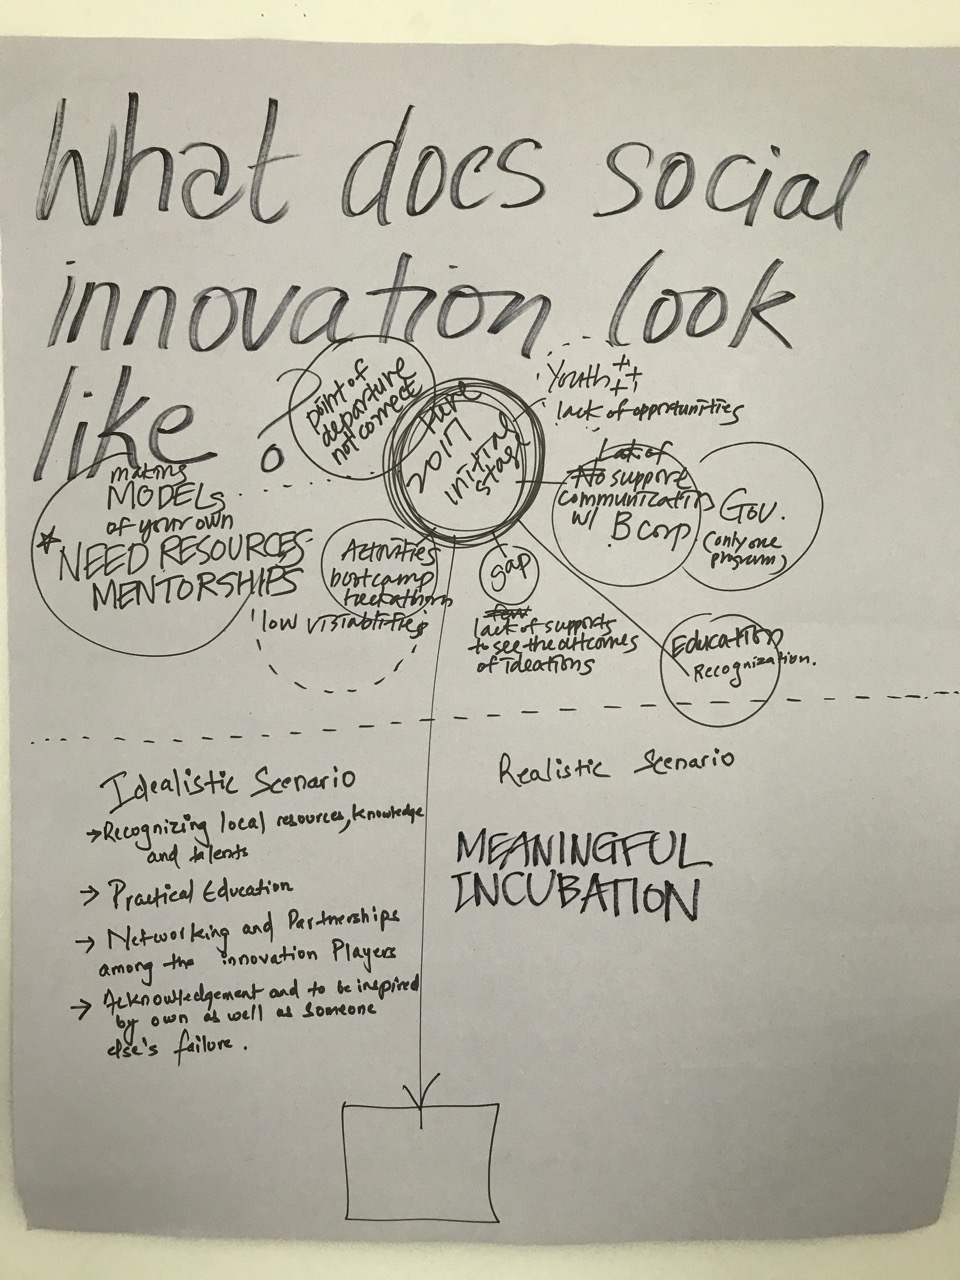 What does social
innovation look
like ?
point of
departure
not correct
here
2017
initial
stage
Youth +++
lack of opportunities
Lack of
No support
communication
w/ B corp
Gov.
(only one
program)
making
MODELS
of your own
* NEED RESOURCES
MENTORSHIPS
Activities
bootcamp
hackathons
low visiablities
gap
few
lack of supports
to see the outcomes
of ideations
Education
Recognization.
Idealistic Scenario
→ Recognizing local resources, knowledge
and talents
→ Practical Education
→ Networking and Partnerships
among the innovation Players
→ Acknowledgement and to be inspired
by own as well as someone
else's failure.
Realistic Scenario
MEANINGFUL
INCUBATION